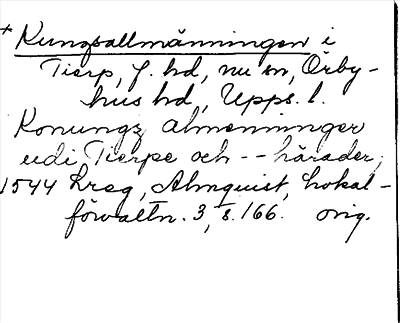 + Kungsallmänningen i
Tierp, f. hd, nu sn, Örby-
hus hd, Upps. l.
Konungz almenninger
udi Tierpe och -- härader,
1544 Lreg, Almquist, Lokal-
förvaltn. 3, s. 166. orig.